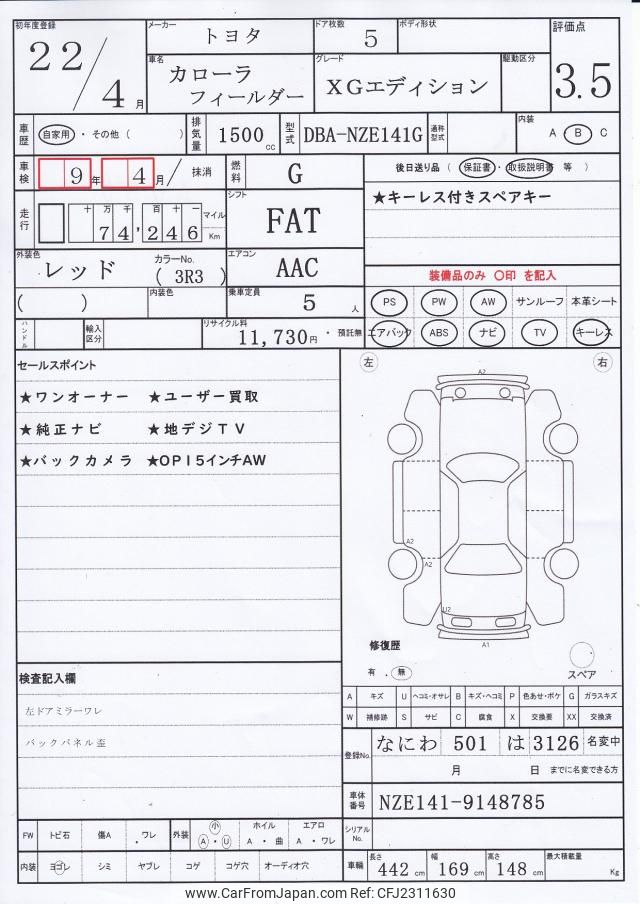 初年度登録
22/4月
メーカー
トヨタ
ドア枚数
5
ボディ形状
評価点
3.5
車名
カローラ
フィールダー
グレード
XGエディション
駆動区分
車歴
自家用・その他( )
排気量
1500cc
型式
DBA-NZE141G
通称型式
内装
A・B C
車検
9年 4月/ 抹消
燃料
G
後日送り品 ( 保証書・取扱説明書 等 )
★キーレス付きスペアキー
走行
十万千百十一
74,246
マイル
Km
シフト
FAT
外装色
レッド
カラーNo.
( 3R3 )
エアコン
AAC
装備品のみ 〇印 を記入
( )
内装色
乗車定員
5人
PS PW AW サンルーフ 本革シート
ハンドル
輸入区分
リサイクル料
11,730円・預託無
エアバック ABS ナビ TV キーレス
セールスポイント
★ワンオーナー ★ユーザー買取
★純正ナビ ★地デジTV
★バックカメラ ★OP15インチAW
左
右
A2
A2
A2
U2
A1
修復歴
有・無
スペア
検査記入欄
左ドアミラーワレ
バックパネル歪
A キズ U ヘコミ・オサレ B キズ・ヘコミ P 色あせ・ボケ G ガラスキズ
W 補修跡 S サビ C 腐食 X 交換要 XX 交換済
登録No.
なにわ 501 は 3126 名変中
月 日 までに名変できる方
車体番号
NZE141-9148785
シリアルNo.
FW トビ石 傷A ・ワレ 外装 小 A・U ホイル A・曲 エアロ A・ワレ
内装 ヨゴレ シミ ヤブレ コゲ コゲ穴 オーディオ穴
車輌
長さ 442cm 幅 169cm 高さ 148cm 最大積載量 Kg
www.CarFromJapan.com Ref: CFJ2311630